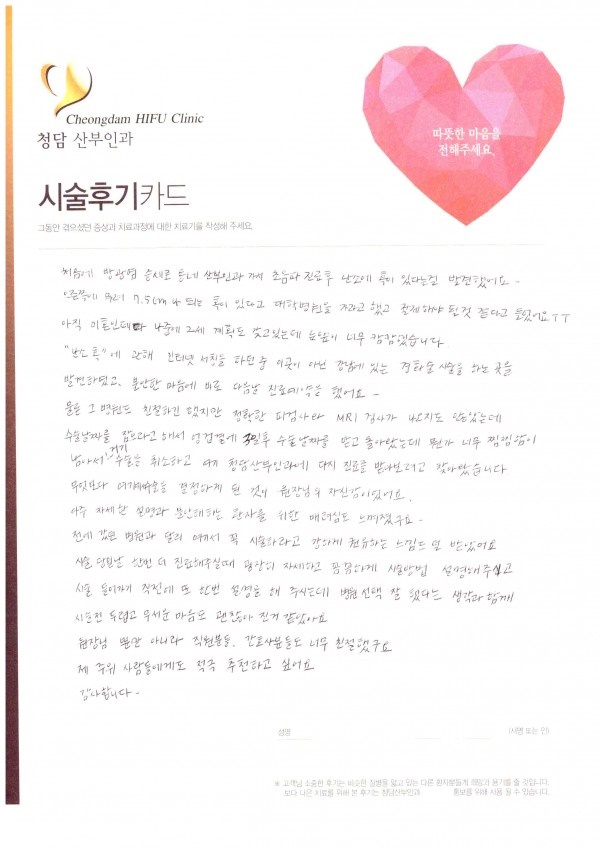 Cheongdam HIFU Clinic
청담 산부인과
따뜻한 마음을
전해주세요.
시술후기카드
그동안 겪으셨던 증상과 치료과정에 대한 치료기를 작성해 주세요.
처음에 방광염 증세로 동네 산부인과 가서 초음파 진료후 난소에 혹이 있다는걸 발견했어요-
오른쪽에 7.5cm나 되는 혹이 있다고 대학병원을 가라고 했고 절제해야 될것 같다고 들었어요ㅜㅜ
아직 미혼인데 나중에 2세 계획도 갖고있는데 눈앞이 너무 캄캄했습니다
"난소 혹"에 관해 인터넷 서칭을 하던 중 이곳이 아닌 강남에 있는 경화술 시술을 하는 곳을
발견하였고, 불안한 마음에 바로 다음날 진료예약을 했어요-
물론 그 병원도 친절하긴 했지만 정확한 피검사나 MRI 검사가 나오지도 않았는데
수술날짜를 잡으라고 해서 엉겁결에 3일후 수술날짜를 받고 돌아왔는데 뭔가 너무 찜찜함이
남아서 거기 수술을 취소하고 여기 청담산부인과에 다시 진료를 받아보려고 찾아왔습니다
무엇보다 여기서 시술을 결정하게 된 것이 원장님의 자신감이었어요.
아주 자세한 설명과 불안해하는 환자를 위한 배려심도 느껴졌구요-
전에 갔던 병원과 달리 여기서 꼭 시술하라고 강하게 권유하는 느낌도 덜 받았어요
시술 당일날 한번 더 진료해주실때 굉장히 자세하고 꼼꼼하게 시술방법 설명해주시고
시술 들어가기 직전에 또 한번 설명을 해 주시는데 병원선택 잘 했다는 생각과 함께
시술전 두렵고 무서운 마음도 괜찮아 진거 같았아요
원장님 뿐만 아니라 직원분들, 간호사분들도 너무 친절했구요
제 주위 사람들에게도 적극 추천하고 싶어요
감사합니다-
성명
(서명 또는 인)
※ 고객님 소중한 후기는 비슷한 질병을 앓고 있는 다른 환자분들께 희망과 용기를 줄 것입니다.
보다 나은 치료를 위해 본 후기는 청담산부인과 홍보를 위해 사용 될 수 있습니다.